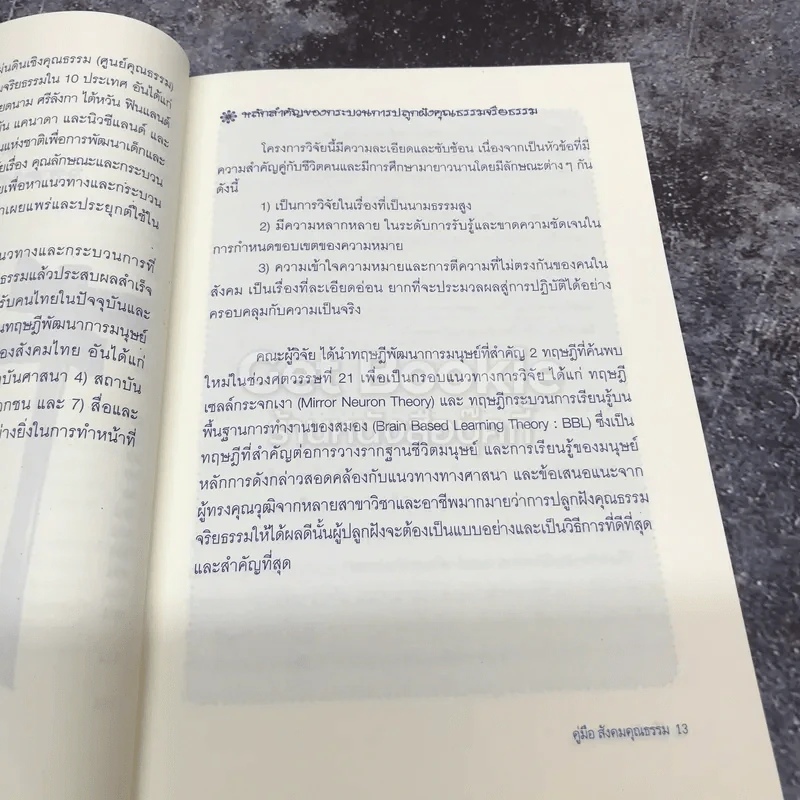 ผ่นดินเชิงคุณธรรม (ศูนย์คุณธรรม)
มจริยธรรมใน 10 ประเทศ อันได้แก่
ยดนาม ศรีลังกา ไต้หวัน ฟินแลนด์
คานาดา และนิวซีแลนด์ และ
นแห่งชาติเพื่อการพัฒนาเด็กและ
ยเรื่อง คุณลักษณะและกระบวน
ยเพื่อหาแนวทางและกระบวน
าเผยแพร่และประยุกต์ใช้ใน
นวทางและกระบวนการที่
ธรรมแล้วประสบผลสำเร็จ
รับคนไทยในปัจจุบันและ
นทฤษฎีพัฒนาการมนุษย์
องสังคมไทย อันได้แก่
าบันศาสนา 4) สถาบัน
อกชน และ 7) สื่อและ
ย่างยิ่งในการทำหน้าที่
หลักสำคัญของกระบวนการปลูกฝังคุณธรรมจริยธรรม
โครงการวิจัยนี้มีความละเอียดและซับซ้อน เนื่องจากเป็นหัวข้อที่มี
ความสำคัญคู่กับชีวิตคนและมีการศึกษามายาวนานโดยมีลักษณะต่างๆ กัน
ดังนี้
1) เป็นการวิจัยในเรื่องที่เป็นนามธรรมสูง
2) มีความหลากหลาย ในระดับการรับรู้และขาดความชัดเจนใน
การกำหนดขอบเขตของความหมาย
3) ความเข้าใจความหมายและการตีความที่ไม่ตรงกันของคนใน
สังคม เป็นเรื่องที่ละเอียดอ่อน ยากที่จะประมวลผลสู่การปฏิบัติได้อย่าง
ครอบคลุมกับความเป็นจริง
คณะผู้วิจัย ได้นำทฤษฎีพัฒนาการมนุษย์ที่สำคัญ 2 ทฤษฎีที่ค้นพบ
ใหม่ในช่วงศตวรรษที่ 21 เพื่อเป็นกรอบแนวทางการวิจัย ได้แก่ ทฤษฎี
เซลล์กระจกเงา (Mirror Neuron Theory) และ ทฤษฎีกระบวนการเรียนรู้บน
พื้นฐานการทำงานของสมอง (Brain Based Learning Theory : BBL) ซึ่งเป็น
ทฤษฎีที่สำคัญต่อการวางรากฐานชีวิตมนุษย์ และการเรียนรู้ของมนุษย์
หลักการดังกล่าวสอดคล้องกับแนวทางทางศาสนา และข้อเสนอแนะจาก
ผู้ทรงคุณวุฒิจากหลายสาขาวิชาและอาชีพมากมายว่าการปลูกฝังคุณธรรม
จริยธรรมให้ได้ผลดีนั้นผู้ปลูกฝังจะต้องเป็นแบบอย่างและเป็นวิธีการที่ดีที่สุด
และสำคัญที่สุด
Get Bookie
ร้านหนังสือบุ๊คกี้
คู่มือ สังคมคุณธรรม 13